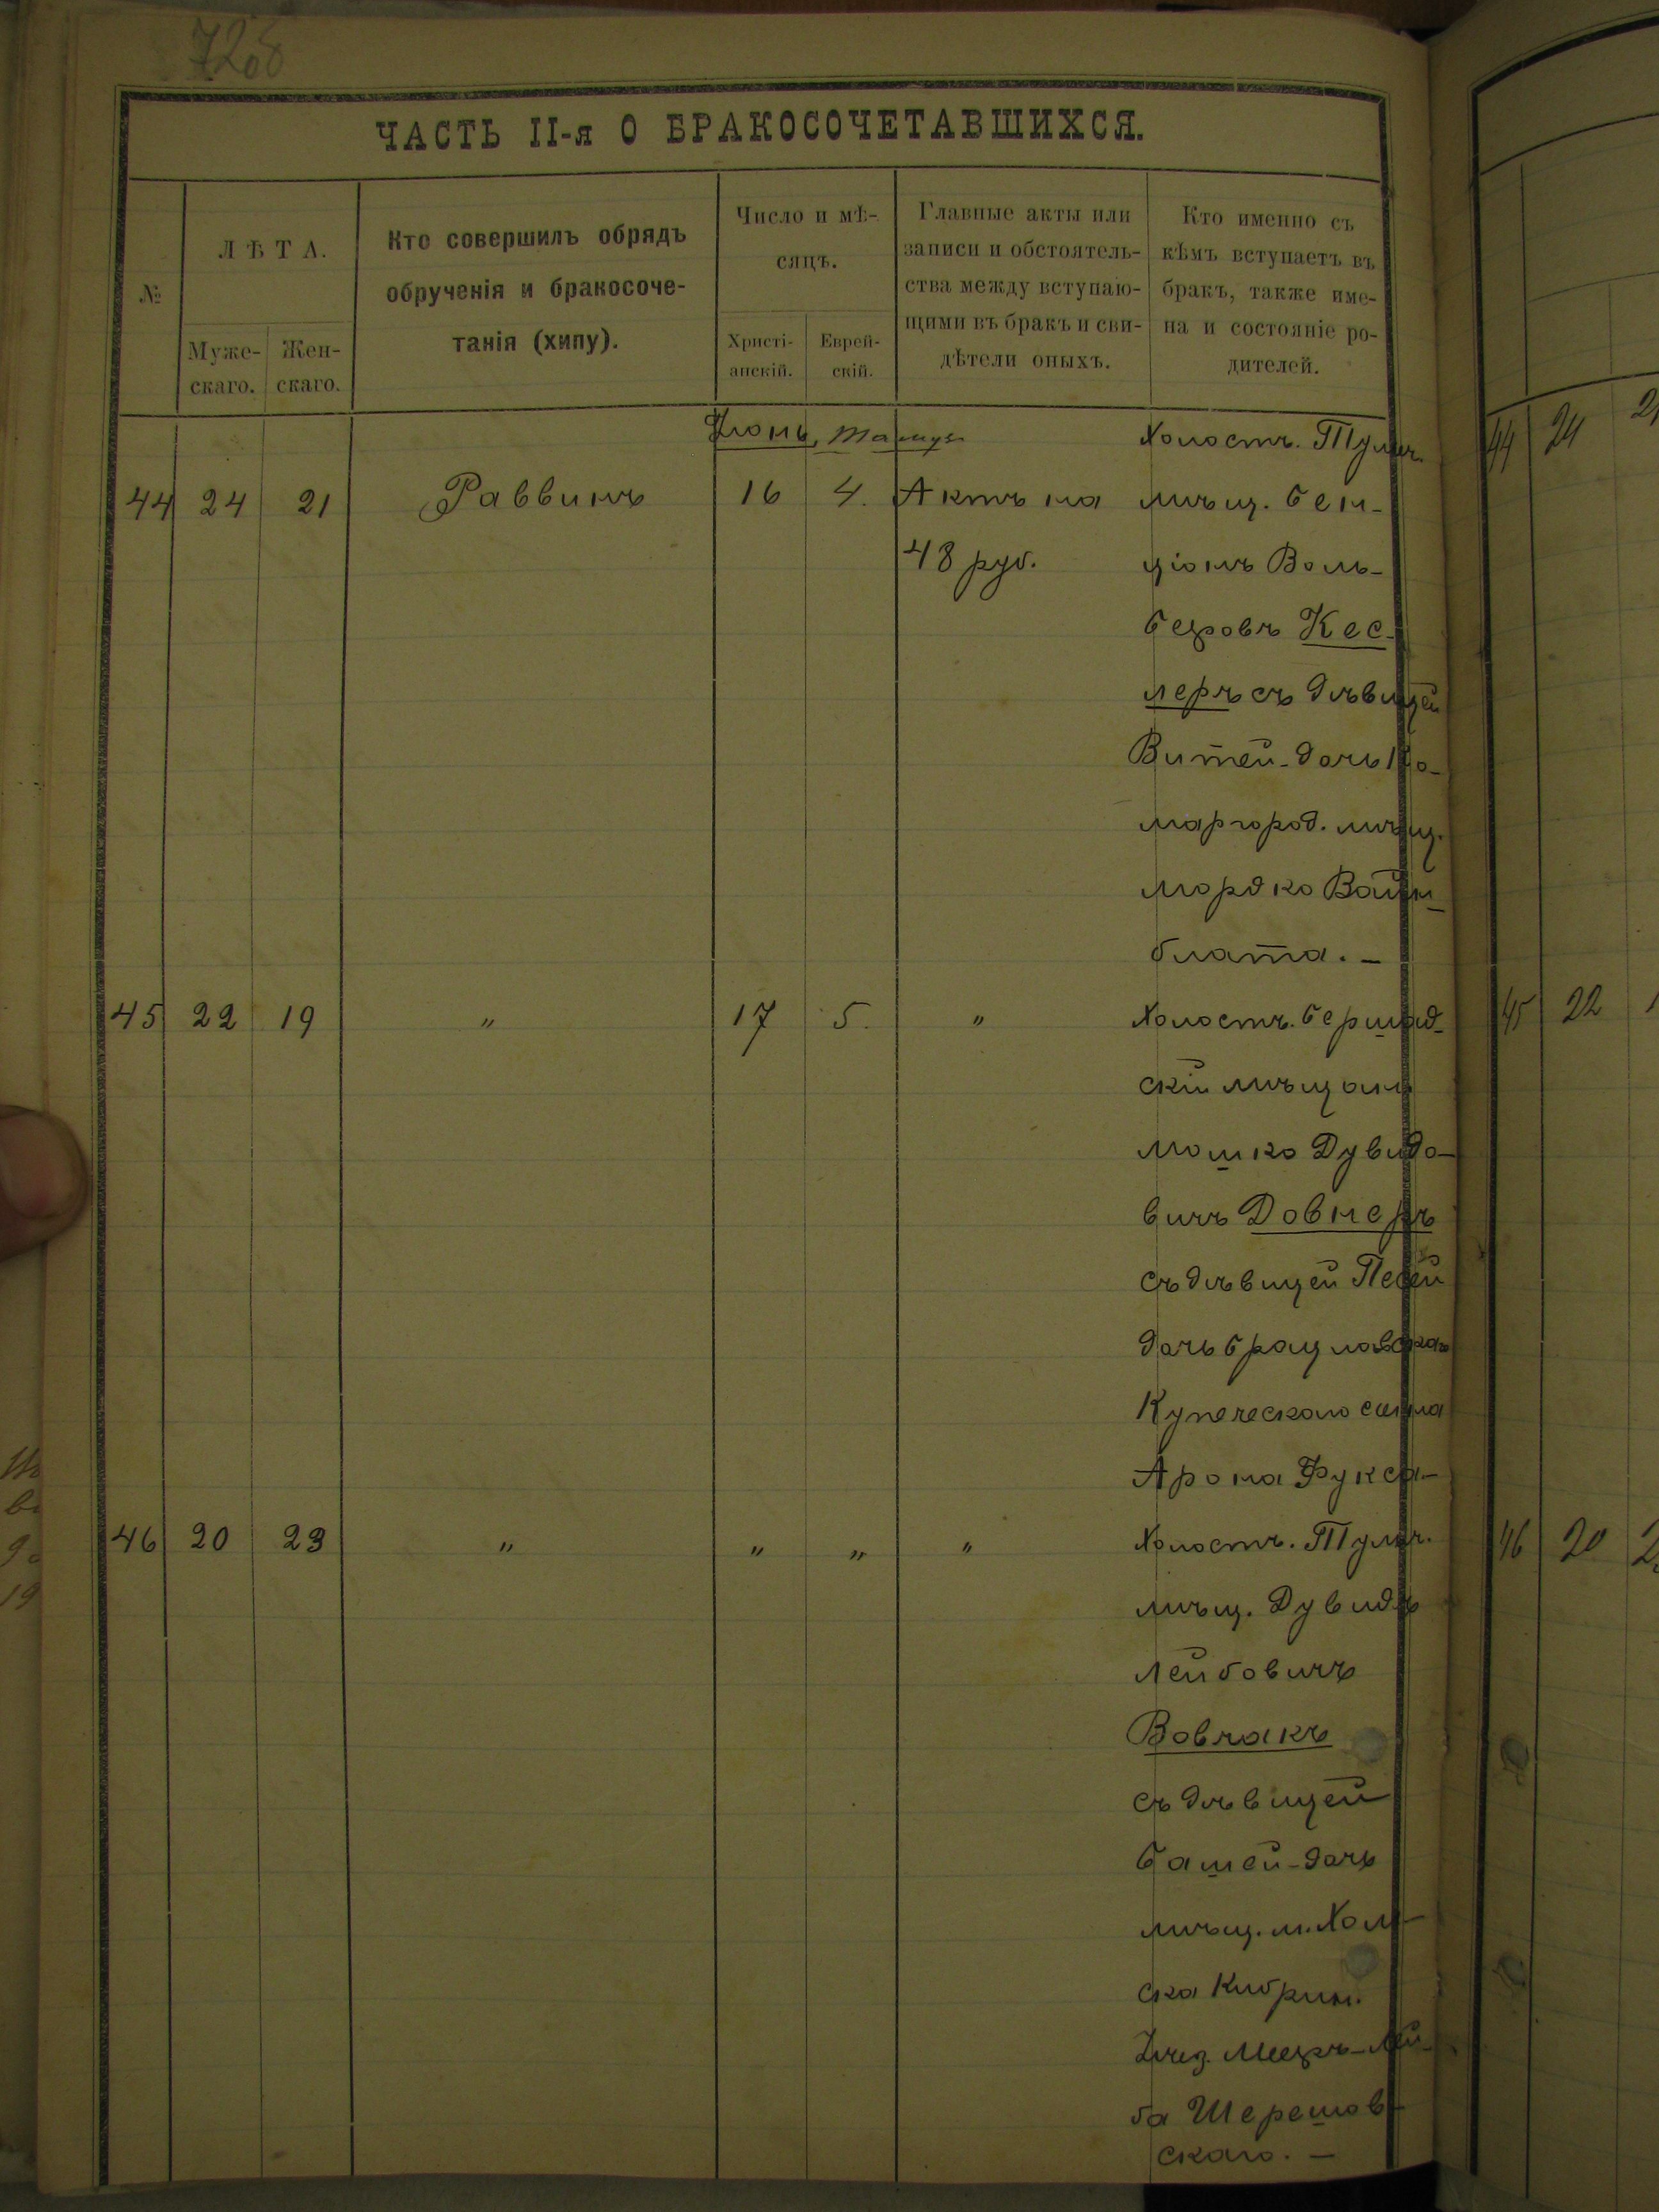 728
ЧАСТЬ II-я О БРАКОСОЧЕТАВШИХСЯ.
№
ЛѢТА.
Муже-
скаго.
Жен-
скаго.
Кто совершилъ обрядъ
обрученія и бракосоче-
танія (хипу).
Число и мѣ-
сяцъ.
Христі-
анскій.
Еврей-
скій.
Главные акты или
записи и обстоятель-
ства между вступаю-
щими въ бракъ и сви-
дѣтели оныхъ.
Кто именно съ
кѣмъ вступаетъ въ
бракъ, также име-
на и состояніе ро-
дителей.
Іюнь, Тамузъ
44 24 21 Раввинъ 16 4. Актъ на
48 руб.
Холостъ. Тульч.
мѣщ. Бен-
ціонъ Воль-
беровъ Кес-
леръ съ дѣвицей
Витей - дочь
маргород. мѣщ.
Мордко Вайн-
блата. -
45 22 19 " 17 5. "
Холостъ. Бершад-
скій мѣщанин
Мошко Дувидо-
вичъ Довнеръ
съ дѣвицей Песей
дочь Брацлавскаго
Купеческаго сына
Арона Фукса -
46 20 23 " " " "
Холостъ. Тульч.
мѣщ. Дувидъ
Лейбовичъ
Вовчакъ
съ дѣвицей
Башей - дочь
мѣщ. м. Хом-
ска Кобрин.
Уѣз. Мееръ-Лей-
ба Шерешов-
скаго. -
44 24 2
45 22 1
46 20 2